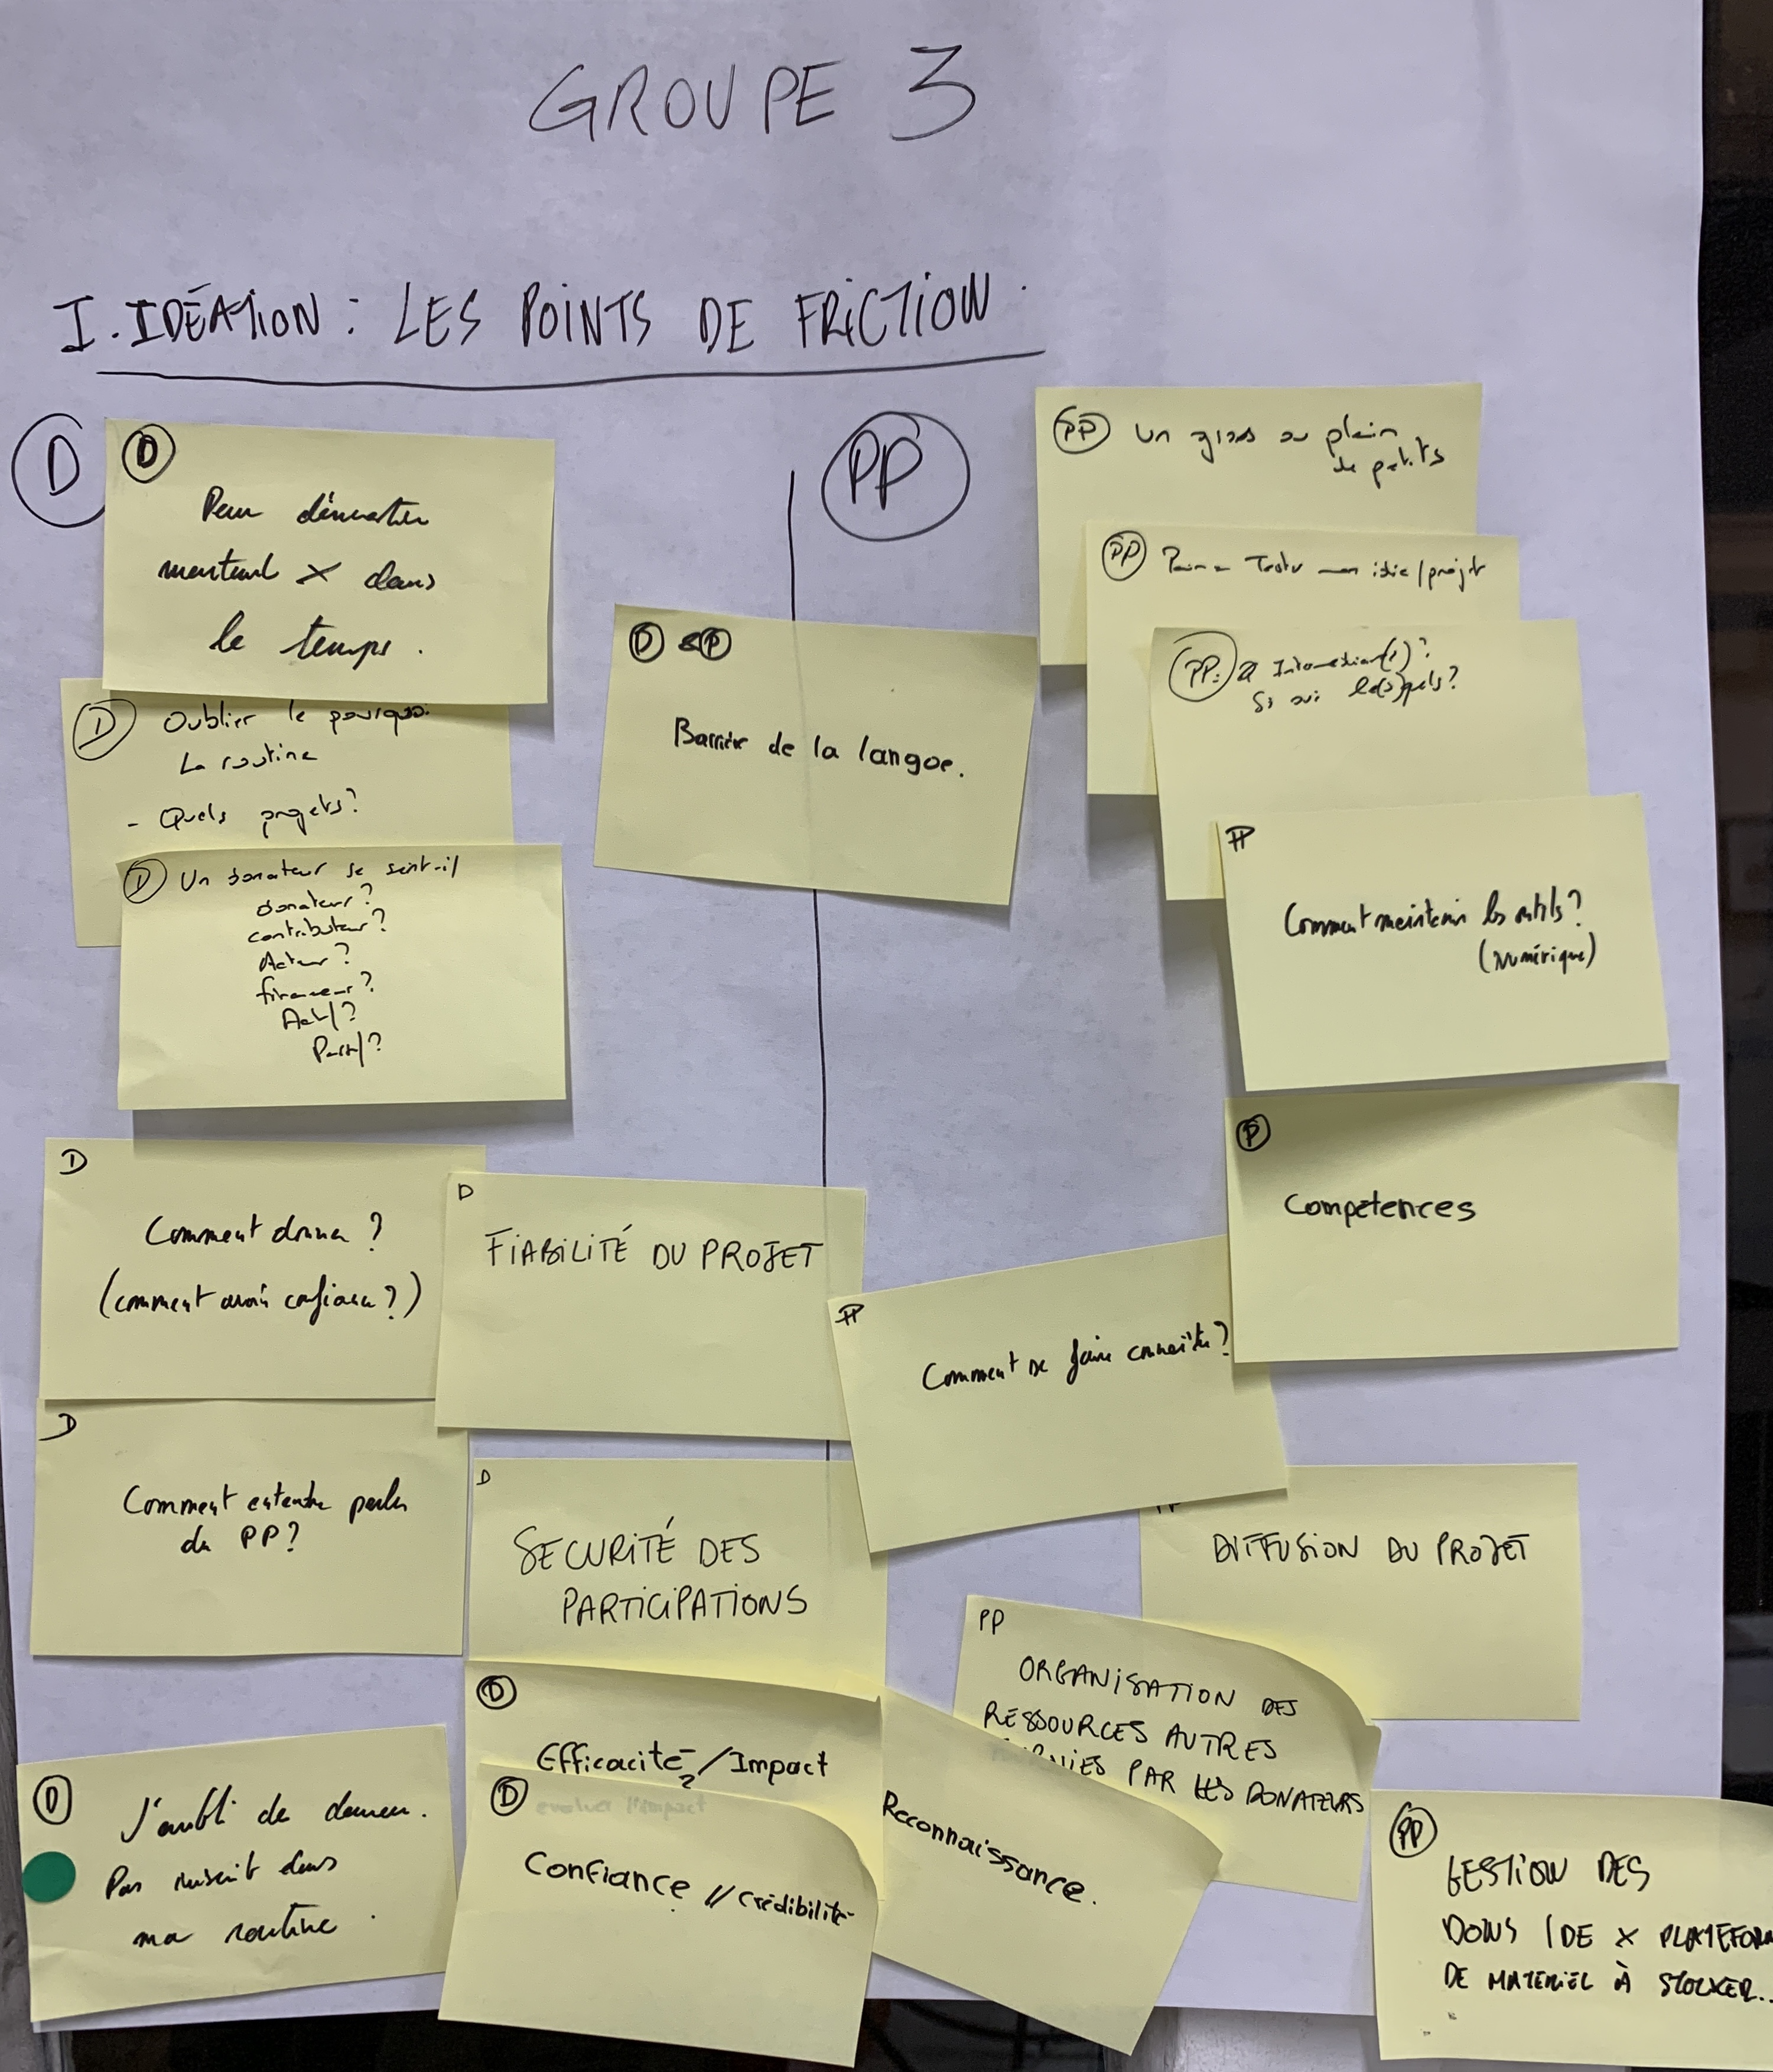 GROUPE 3
I. IDÉATION : LES POINTS DE FRICTION.
D
D
Peur démarcher
mentent X dans
le temps.
D Oublier le pourquoi
La routine
- Quels projets?
D Un donateur se sent-il
donateur?
contributeur?
Acteur?
financeur?
Actif?
Passif?
D
Comment donner ?
(comment avoir confiance ?)
D
Comment entendre parler
du PP ?
D
J'oubli de donner.
Pas inscrit dans
ma routine.
D
FIABILITÉ DU PROJET
D
SECURITÉ DES
PARTICIPATIONS
D
Efficacité / Impact
?
evaluer l'impact
D
Confiance // crédibilité
D & P
Barrière de la langue.
PP
PP Un gros ou plein
de petits
PP Tester mon idée/projet
PP: Intermédiaire(s)?
Si oui le(s)quels?
PP
Comment maintenir les outils?
(numérique)
P
Compétences
PP
Comment se faire connaître?
PP
DIFFUSION DU PROJET
PP
ORGANISATION DES
RESSOURCES AUTRES
FOURNIES PAR LES DONATEURS
Reconnaissance.
PP
GESTION DES
DONS (DE X PLATEFORM
DE MATERIEL À STOCKER...